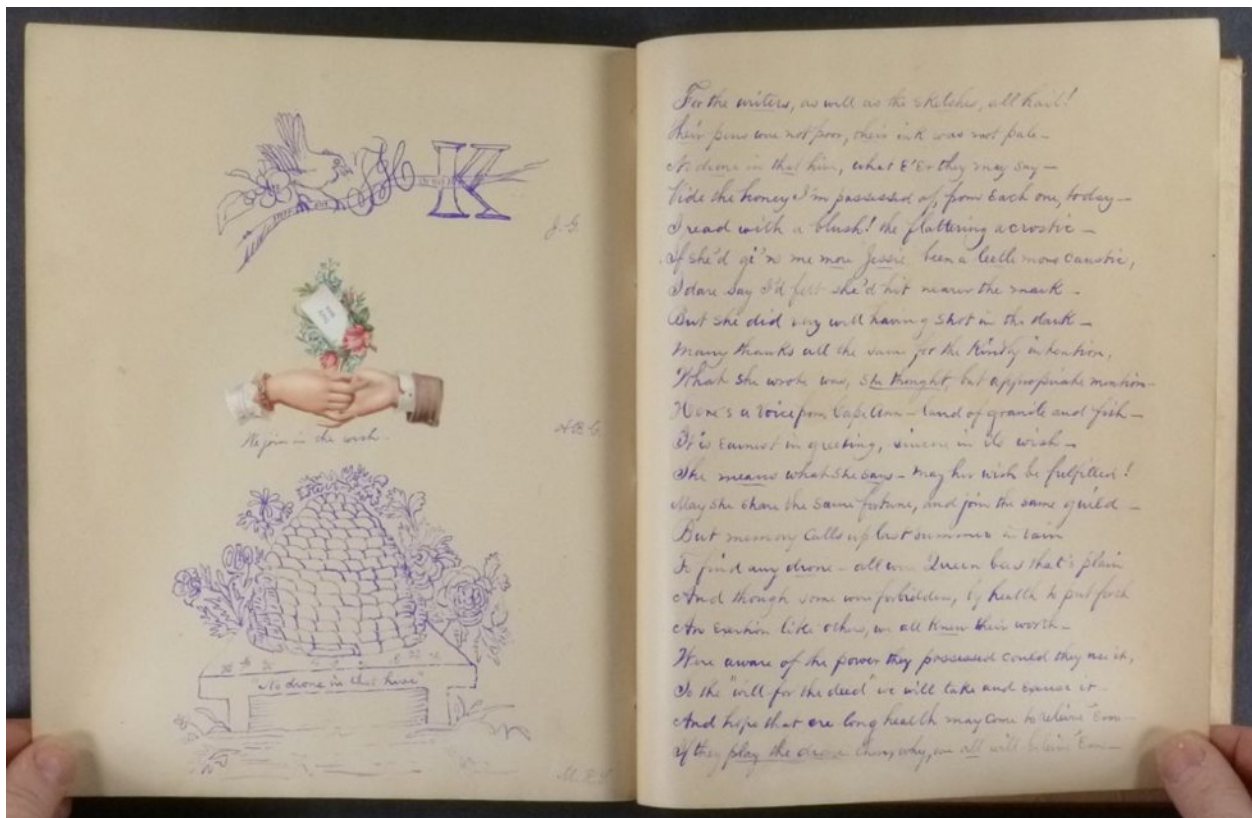 H K
J. G.
We join in the wish.
"No drone in that hive"
For the writers, as well as the sketches, all hail!
Their pens were not poor, their ink was not pale—
No drone in that hive, what E'Er they may say—
Vide the honey I'm possessed of, from Each one, today—
I read with a blush! the flattering acrostic—
If she'd gi'n me more Jessie been a leetle more caustic,
I dare say I'd felt she'd hit nearer the mark—
But she did very well having shot in the dark—
Many thanks all the same for the Kindly intention,
What she wrote was, she thought, but appropriate mention—
Here's a voice from Cape Ann—land of granite and fish—
It is Earnest in greeting, sincere in its wish—
She means what she says—may her wish be fulfilled!
May she share the same fortune, and join the same guild—
But memory calls up last summer in vain
To find any drone—all were Queen bees that's plain
And though some were forbidden, by health to put forth
An Exertion like others, we all Knew their worth—
Were aware of the power they possessed could they use it,
So the "will for the deed" we will take and Excuse it—
And hope that ere long health may come to relieve 'Em—
If they play the drone then, why, we all will 'Em—